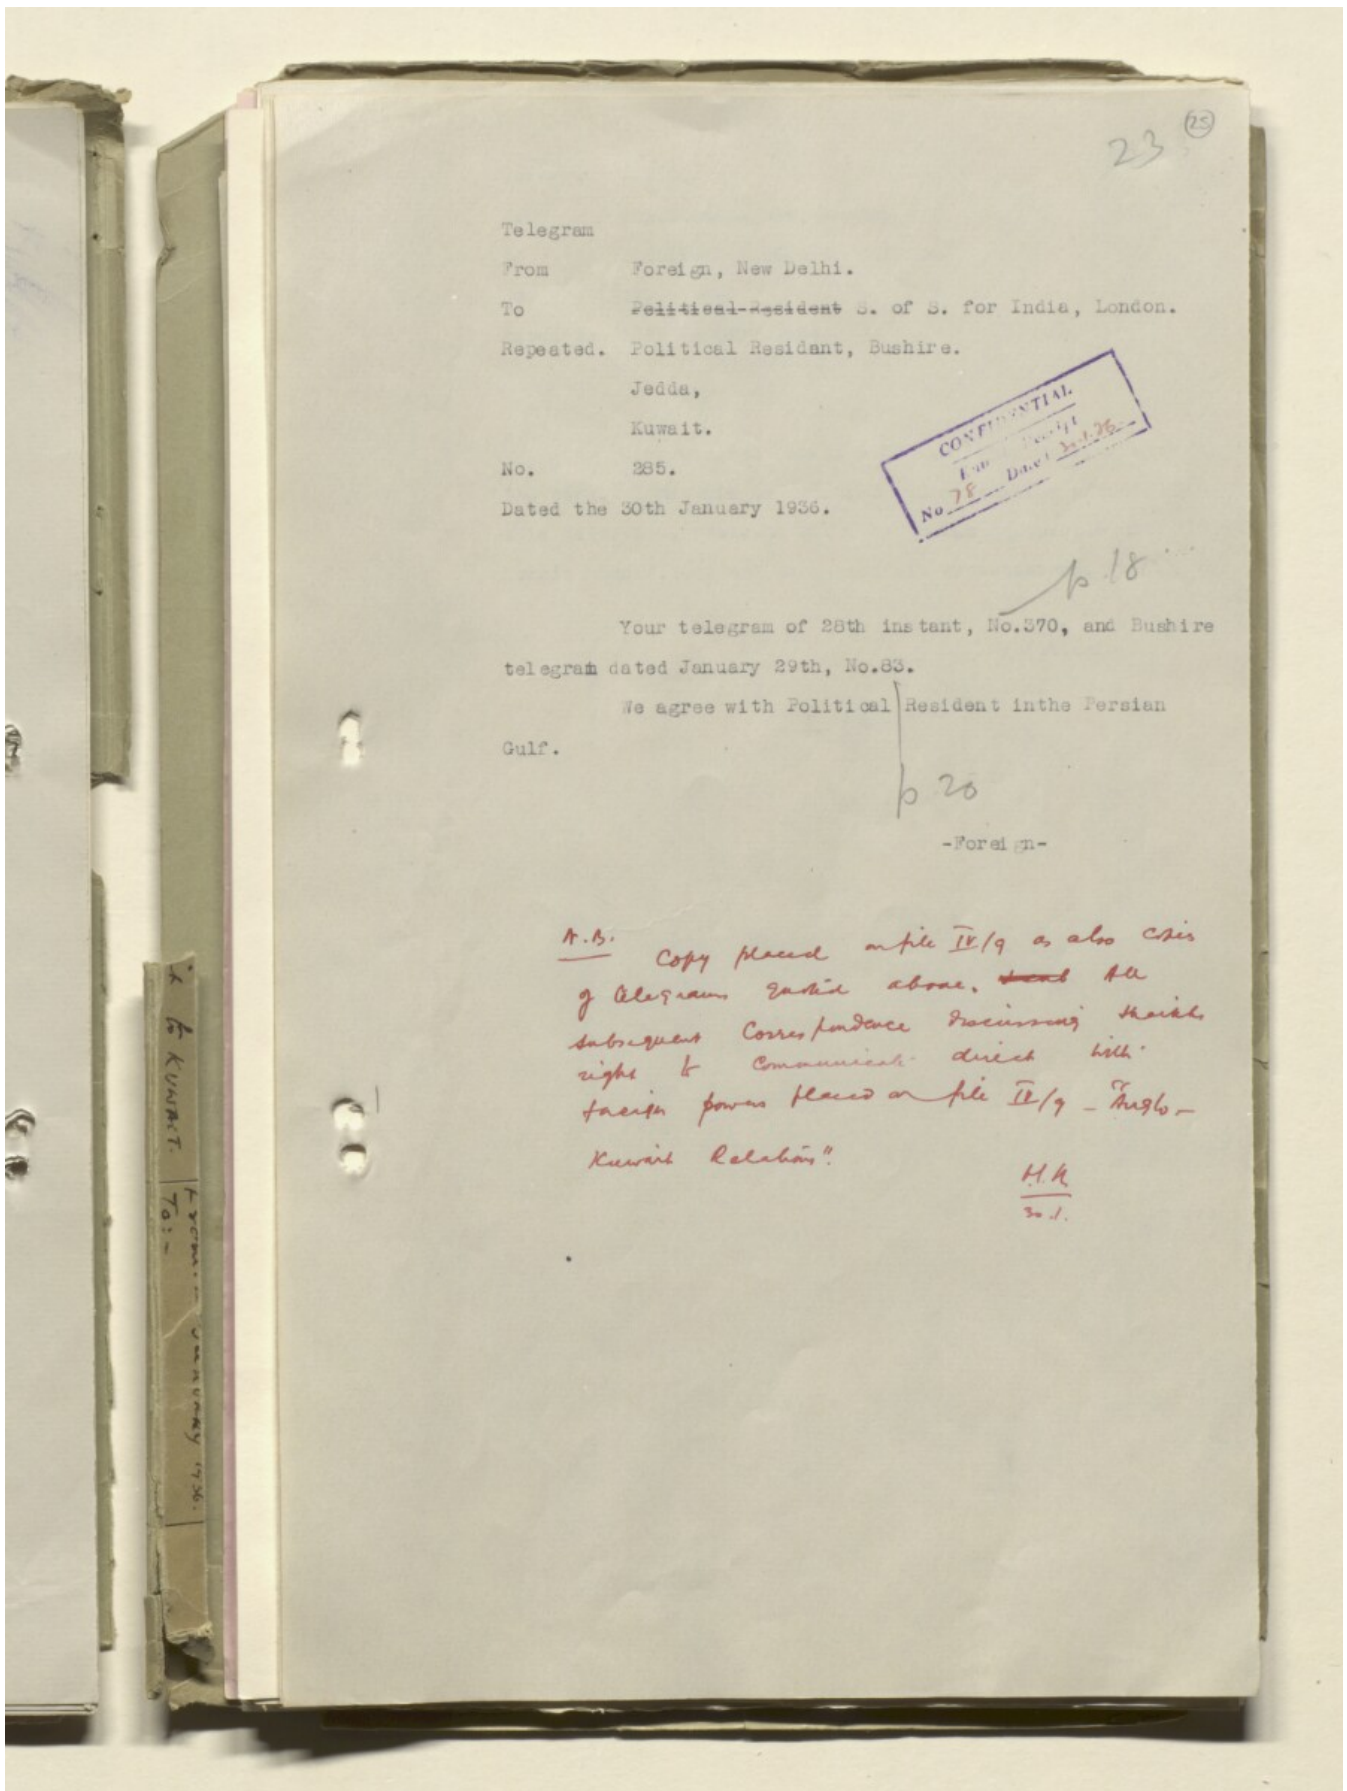 23 25
Telegram
From Foreign, New Delhi.
To Political-Resident S. of S. for India, London.
Repeated. Political Resident, Bushire.
Jedda,
Kuwait.
CONFIDENTIAL
Receipt
No 78 Date 30.1.36
No. 285.
Dated the 30th January 1936.
p 18
Your telegram of 28th instant, No.370, and Bushire
telegram dated January 29th, No.83.
We agree with Political Resident inthe Persian
Gulf.
p 20
-Foreign-
N.B. Copy placed on file IV/9 as also copies
of telegrams quoted above. All
subsequent correspondence discussing Shaikhs
right to communicate direct with
foreign powers placed on file IV/9 - "Anglo-
Kuwait Relations".
30.1.
to KUWAIT.
To:-